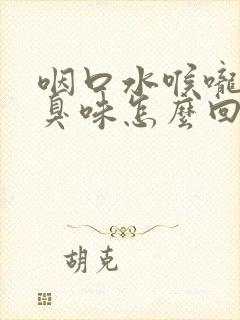 咽口水喉嚨
臭味怎麼回
胡克